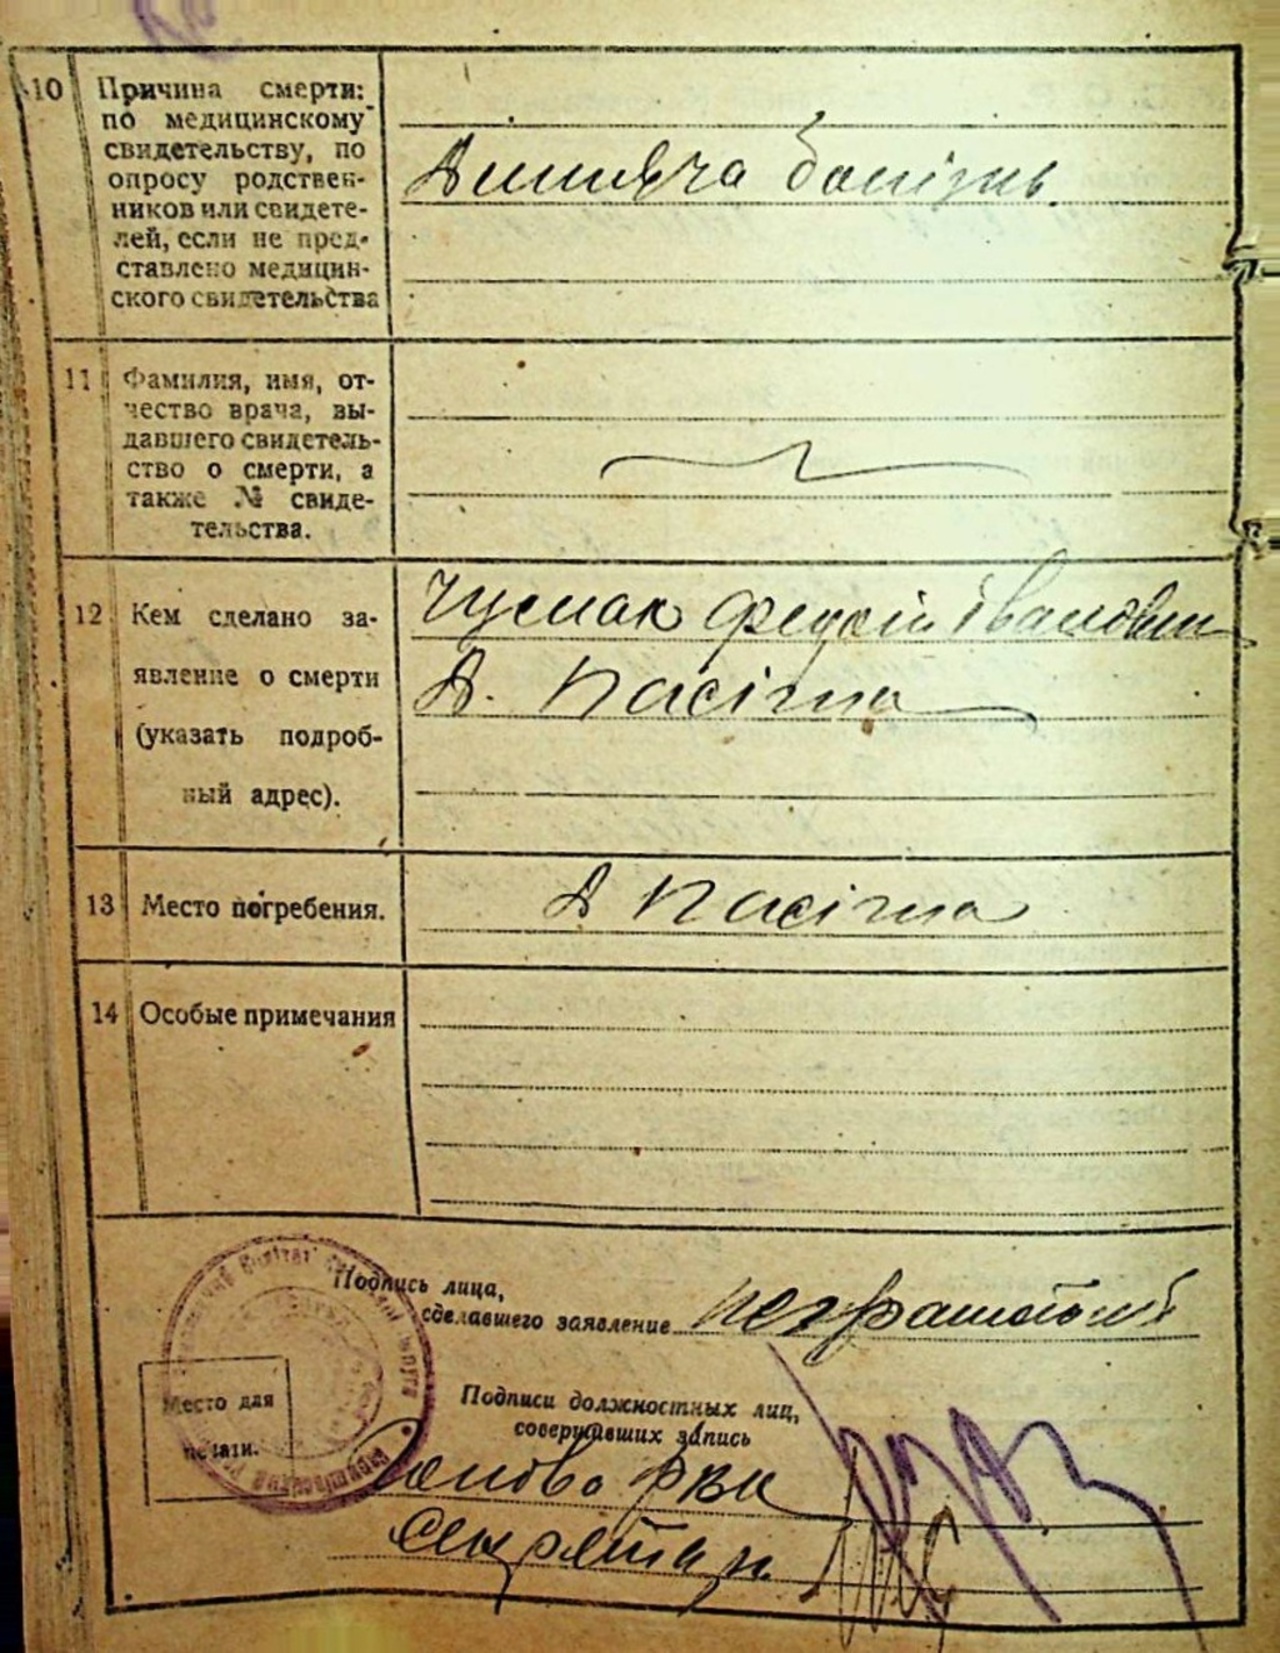 10 Причина смерти:
по медицинскому
свидетельству, по
опросу родствен-
ников или свидете-
лей, если не пред-
ставлено медицин-
ского свидетельства
Дитяча болізнь
11 Фамилия, имя, от-
чество врача, вы-
давшего свидетель-
ство о смерти, а
также № свиде-
тельства.
12 Кем сделано за-
явление о смерти
(указать подроб-
ный адрес).
Чумак Іванович
Пасічна
13 Место погребения.
Пасічна
14 Особые примечания
Подпись лица,
сделавшего заявление
Место для
печати.
Подписи должностных лиц,
совершивших запись
Голова
Секретар